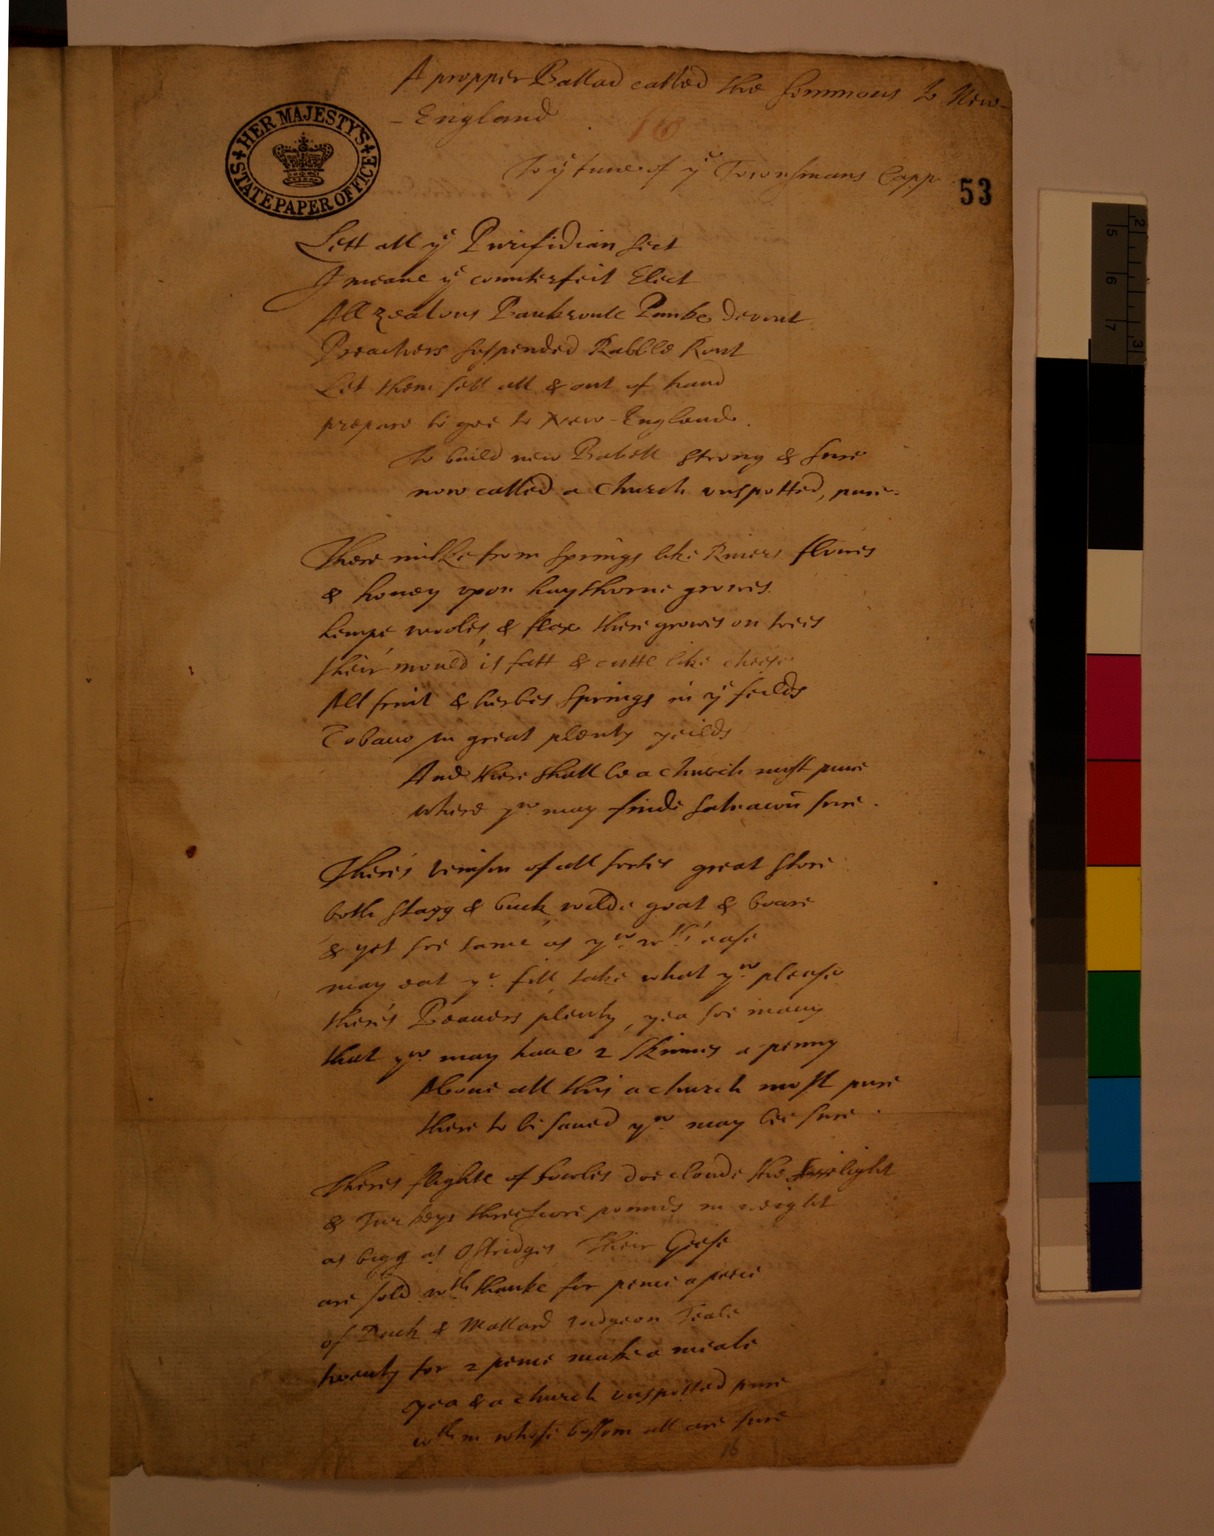 A propper Ballad called the Sommons to New-
-England
16
To ye tune of ye Townsmans Capp
HER MAJESTY'S STATE PAPER OFFICE
53
Lett all ye Purifidian sect
I meane ye counterfeit Elect
All zealous Bankroute Punkes devout
Preachers suspended Rabble Rout
Let them sell all & out of hand
prepare to goe to New-England.
To build new Babell strong & sure
now called a Church unspotted, pure.
There milke from springs like Rivers flowes
& honey upon haythorne growes.
hempe, wooles, & flax there growes on trees
their mould is fatt & cutte like cheese
All fruit & herbes springs in ye feilds
Tobacco in great plenty yeilds
And there shall be a church most pure
where yow may finde salvacon sure.
There's venison of all sortes great store
both stagg & buck wilde goat & boare
& yet soe tame as yow wth ease
may eat yr fill, take what yow please
there's Beavers plenty, yea soe many
that yow may have 2 skinnes a penny
Above all this a church most pure
there to be saved yow may bee sure.
Theres flights of fowles doe cloude the light
& Turkeys threescore pounds in weight
as bigg as Ostridges, Their Geese
are sold wth thanke for pence a peece
of Duck & Mallard widgeon Teale
twenty for 2 pence make a meale
yea & a church unspotted pure
wthin whose bosom all are sure
16
2
5
6
7
3